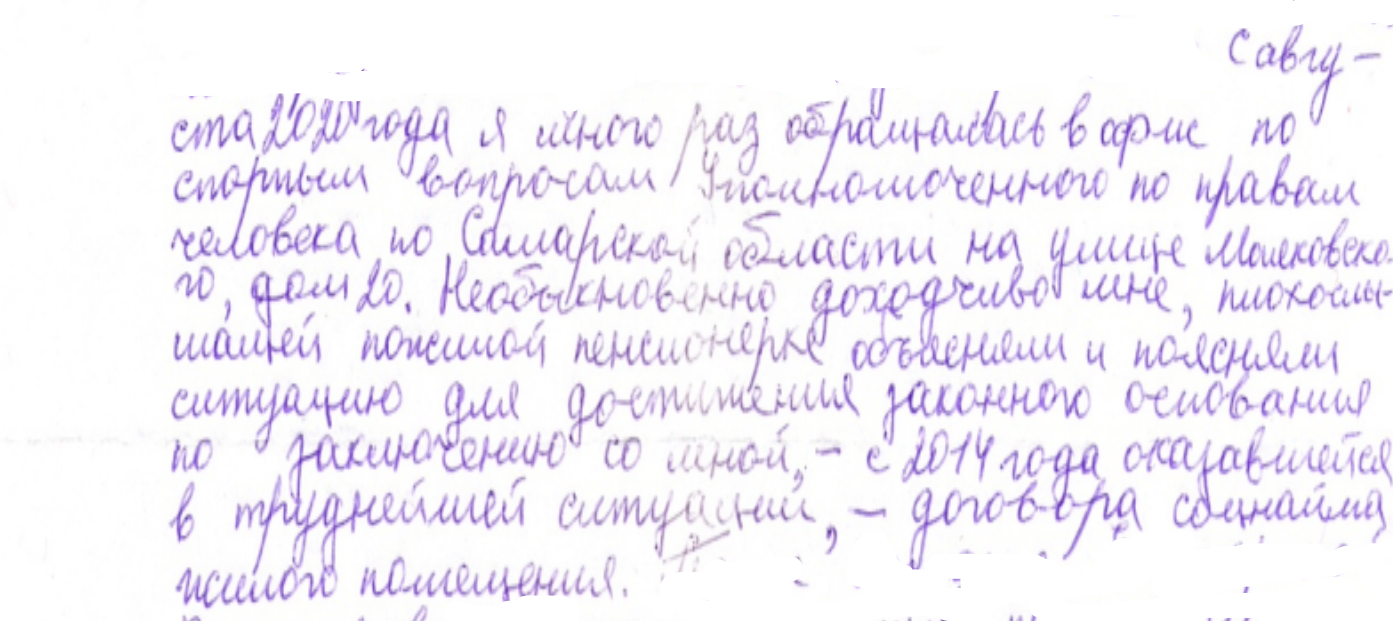 С авгу-
ста 2020 года я много раз обращалась в офис по
спорным вопросам Уполномоченного по правам
человека по Самарской области на улице Маяковско-
го, дом 20. Необыкновенно доходчиво мне, плохослы-
шащей пожилой пенсионерке объясняли и поясняли
ситуацию для достижения законного основания
по заключению со мной, – с 2014 года оказавшейся
в труднейшей ситуации, – договора соцнайма
жилого помещения.